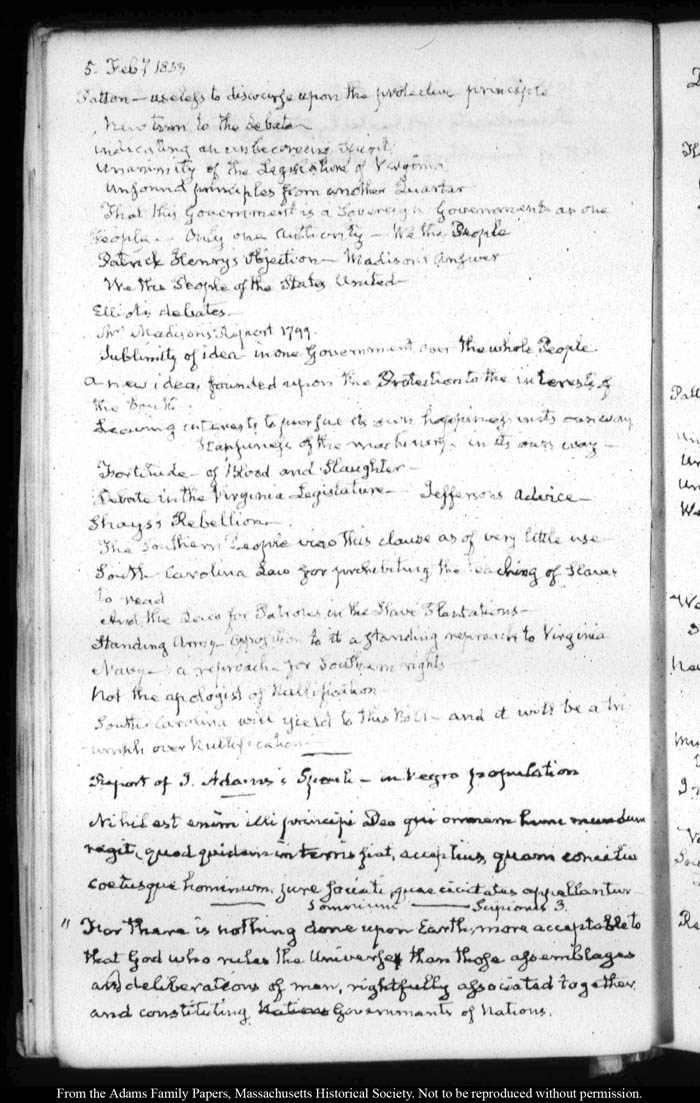 5. Feb 7 1833
Patton — useless to discourse upon the protective principle
New turn to the debate
indicating an unbecoming spirit
Unanimity of the Legislature of Virginia
unsound principles from another Quarter
That this Government is a Sovereign Government as one
People — Only one authority — We the People
Patrick Henry's objection — Madison's answer
We the People of the States United —
Elliot's debates —
Mr Madison's Report 1799.
Sublimity of idea in one Government over the whole People
a new idea, founded upon the Protection to the interests of
the South.
Leaving interests to pursue its own happiness in its own way
of the machinery in its own way —
Fortitude — of Blood and Slaughter —
Debate in the Virginia Legislature — Jefferson's advice —
Shays's Rebellion —
The Southern People view this clause as of very little use
South Carolina Law for prohibiting the teaching of slaves
to read
And the Laws for Patroles, in the Slave Plantations —
Standing Army — opposition to it a standing reproach to Virginia
Navy — a reproach for Southern rights
Not the apologist of Nullification
South Carolina will yield to this Bill — and it will be a tri
umph over Nullification —
Report of J. Adams's Speech — in Negro population
Nihil est enim illi principi Deo qui omnem hunc mundum
regit, quod quidem in terris fiat, acceptius, quam concilia
coetusque hominum, jure sociati, quae civitates appellantur
Somnium Scipionis 3.
" For there is nothing done upon Earth, more acceptable to
that God who rules the Universe than those assemblages
and deliberations of men, rightfully associated together,
and constituting Nations Governments of Nations.
From the Adams Family Papers, Massachusetts Historical Society. Not to be reproduced without permission.